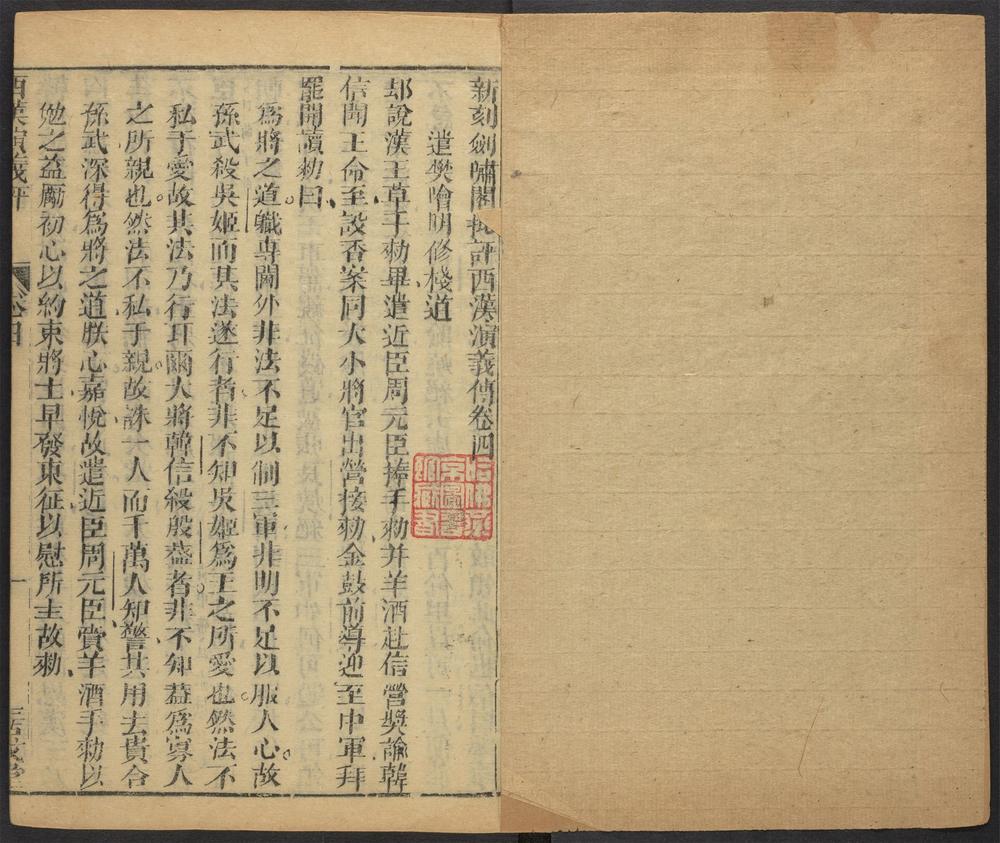 新刻劍嘯閣批評西漢演義傳卷四
遣樊噲明修棧道
却說漢王草手勑畢遣近臣周元臣捧手勑并羊酒赴信營獎諭韓
信聞王命至設香案同大小將官出營接勑金鼓前導迎至中軍拜
罷開讀勑曰
為將之道職專閫外非法不足以制三軍非明不足以服人心故
孫武殺吳姬而其法遂行者非不知吳姬為王之所愛也然法不
私于愛故其法乃行耳爾大將韓信殺殷蓋者非不知蓋為寡人
之所親也然法不私于親故誅一人而千萬人知警其用去貴合
孫武深得為將之道朕心嘉悅故遣近臣周元臣賫羊酒手勑以
勉之益勵初心以約束將士早發東征以慰所主故勑
西漢演義評
卷四
一